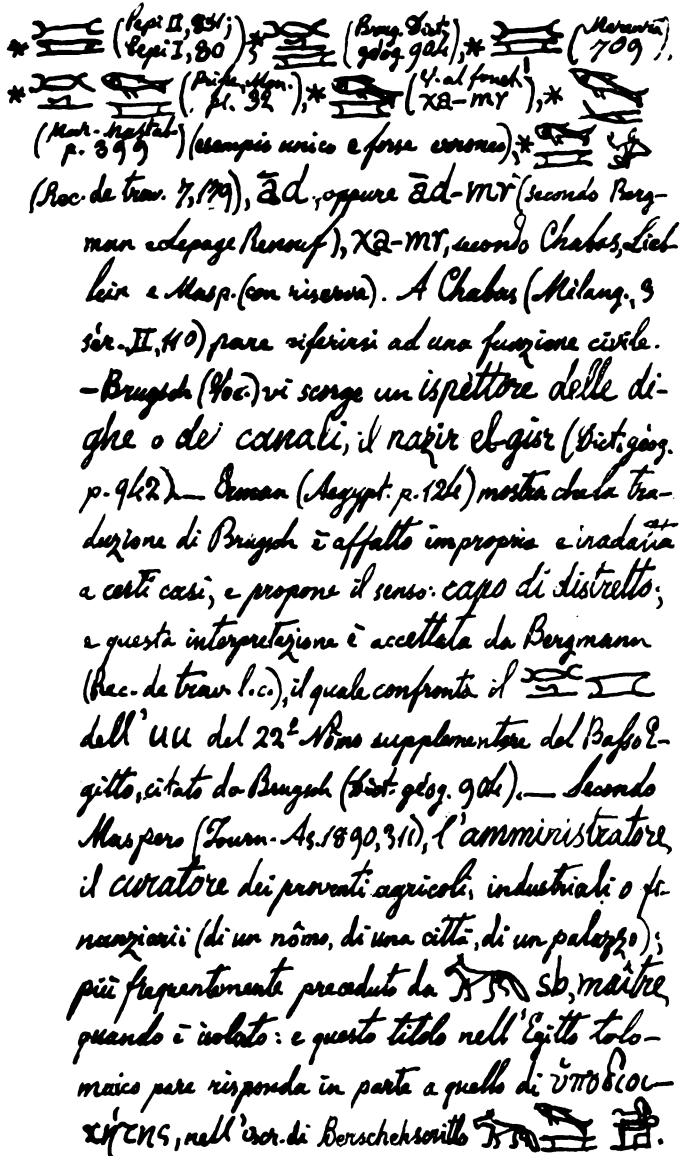 * (Pepi II, 831; Pepi I, 80); * (Brug. Dict. géog. 904), * (Merenrā 709),
* (Prisse, Mon. pl. 92), * (V. al fonet. χa-mr), *
(Mar. Mastab. p. 399) (esempio unico e forse erroneo), *
(Rec. de trav. 7, 179), ād, oppure ād-mr (secondo Berg-
man e Lepage Renouf), χa-mr, secondo Chabas, Lieb-
lein e Masp. (con riserva). A Chabas (Mélang., 3
sér. II, 110) pare riferirsi ad una funzione civile.
– Brugsch (Voc.) vi scorge un ispettore delle di-
ghe o de' canali, il nazir el-gisr (Dict. géog.
p. 942). — Erman (Aegypt. p. 124) mostra che la tra-
duzione di Brugsch è affatto impropria e inadatta
a certi casi, e propone il senso: capo di distretto;
e questa interpretazione è accettata da Bergmann
(Rec. de trav. l.c.), il quale confronta il
dell' uu del 22º Nômo supplementare del Basso E-
gitto, citato da Brugsch (Dict. géog. 904). — Secondo
Maspero (Journ. As. 1890, 311), l'amministratore,
il curatore dei proventi agricoli, industriali o fi-
nanziarii (di un nômo, di una città, di un palazzo);
più frequentemente preceduto da sb, maître,
quando è isolato: e questo titolo nell'Egitto tolo-
maico pare risponda in parte a quello di ὑποδιοι-
κητης, nell'iscr. di